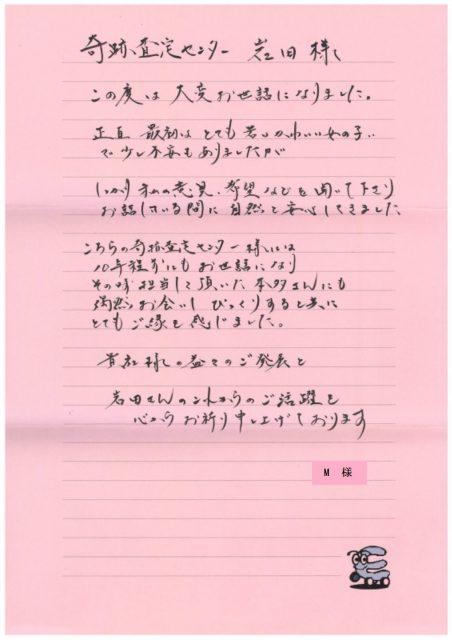 奇跡査定センター 岩田 様
この度は 大変お世話になりました。
正直 最初は とても若いかわいい女の子‥
で少し不安もありましたが
しっかり私の意見、希望などを聞いて下さり
お話している間に自然と安心してきました
こちらの奇跡査定センター様には
10年程前にもお世話になり
その時担当して頂いた本多さんにも
偶然お会いし びっくりすると共に
とてもご縁を感じました。
貴社様の益々のご発展と
岩田さんのこれからのご活躍を
心からお祈り申し上げております
M 様